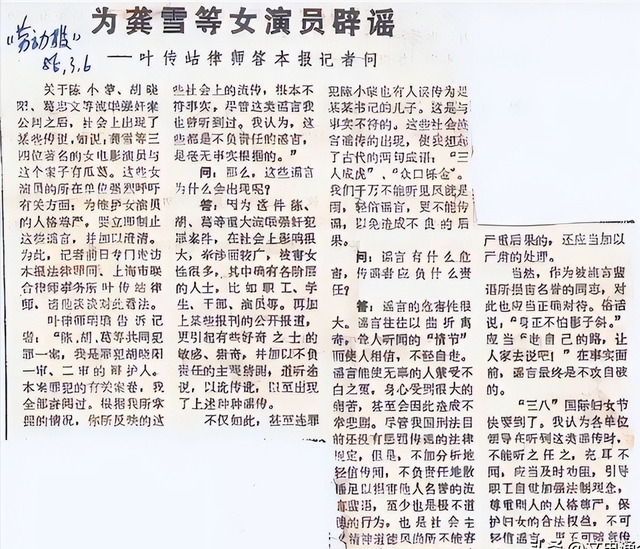 为龚雪等女演员辟谣
——叶传岵律师答本报记者问
《劳动报》
86.3.6
关于陈小蒙、胡晓
阳、葛忠文等流氓强奸案
公判之后，社会上出现了
某些传说，如说，龚雪等三
四位著名的女电影演员与
这个案子有瓜葛。这些女
演员的所在单位强烈呼吁
有关方面，为维护女演员
的人格尊严，要立即制止
这些谣言，并加以澄清。
为此，记者前日专门走访
本报法律顾问、上海市联
合律师事务所叶传岵律
师，请他谈谈对此看法。
叶律师明确告诉记
者：“陈、胡、葛等共同犯
罪一案，我是罪犯胡晓阳
一审、二审的辩护人。
本案罪犯的有关案卷，我
全部查阅过。根据我所掌
握的情况，你所反映的这
些社会上的流传，根本不
符事实，尽管这类谣言我
也曾听到过。我认为，这
些都是不负责任的谣言，
是毫无事实根据的。”
问：那么，这些谣言
为什么会出现呢？
答：因为这件陈、
胡、葛等重大流氓强奸犯
罪案件，在社会上影响很
大，牵涉面较广，被害女
性很多，其中确有各阶层
的人士，比如职工、学
生、干部、演员等。再加
上某些报刊的公开报道，
更引起有些好奇之士的
敏感、猎奇，并加以不负
责任的主观猜测，道听途
说，以此传讹，以至出现
了上述种种谣传。
不仅如此，甚至连罪
犯陈小蒙也有人误传为是
某某书记的儿子。这是与
事实不符的。这些社会流
言谣传的出现，使我想起
了古代的两句成语：“三
人成虎”、“众口铄金”。
我们千万不能听见风就是
雨，轻信谣言，更不能传
谣，以免造成不良的后
果。
问：谣言有什么危
害，传谣者应负什么责
任？
答：谣言的危害性很
大。谣言往往以曲折离
奇、耸人听闻的“情节”
而使人相信，不胫自走。
谣言使无辜的人蒙受不
白之冤，身心受到很大的
痛苦，甚至会因此造成不
幸悲剧。尽管我国刑法目
前还没有惩罚传谣的法律
规定，但是，不加分析地
轻信传闻，不负责任地散
播足以损害他人名誉的流
言蜚语，至少也是极不道
德的行为，也是社会主
义精神道德风尚所不能容
严重后果的，还应当加以
严肃的处理。
当然，作为被流言蜚
语所损害名誉的同志，对
此也应当正确对待。俗话
说：“身正不怕影子斜。”
应当“走自己的路，让
人家去说吧！”在事实面
前，谣言最终是不攻自破
的。
“三八”国际妇女节
快要到了。我认为各单位
领导在听到这类谣传时，
不能听之任之，充耳不
闻，应当及时劝阻，引导
职工自觉加强法制观念，
尊重别人的人格尊严，保
护妇女的合法权益，不可
轻信谣言，更不可随意传